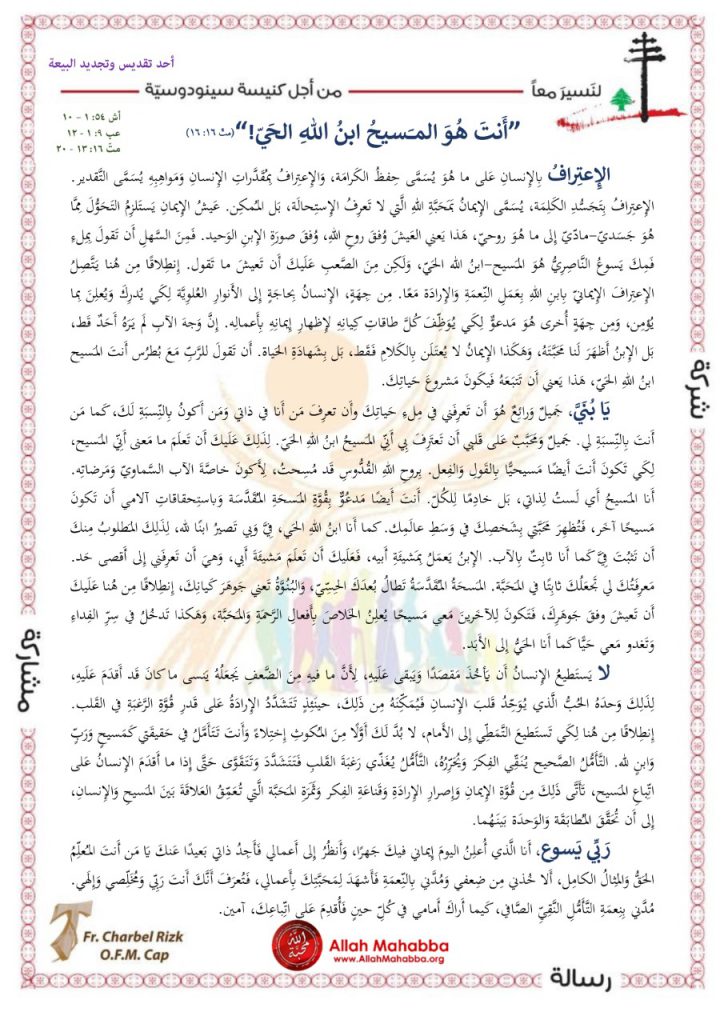 أحد تقديس وتجديد البيعة
لنَسيرَ معاً
من أجل كنيسة سينودوسيّة
أش ٥٤: ١ - ١٠
عب ٩: ١ - ١٢
متّ ١٦: ١٣ - ٢٠
”أَنتَ هُوَ المَسيحُ ابنُ اللهِ الحَيّ!“ (متّ ١٦: ١٦)
الإعتِرافُ بِالإنسانِ عَلى ما هُوَ يُسَمَّى حِفظُ الكَرامَة، وَالإعتِرافُ بِمُقَدَّراتِ الإنسانِ وَمَواهِبِهِ يُسَمَّى التَّقدير.
الإعتِرافُ بِتَجَسُّدِ الكَلِمَة، يُسَمَّى الإيمانُ بِمَحَبَّةِ اللهِ الَّتي لا تَعرِفُ الإستِحالَة، بَل المُمكِن. عَيشُ الإيمانِ يَستَلزِمُ التَحَوُّلَ مِمَّا
هُوَ جَسَديّ-مادّيّ إلى ما هُوَ روحيّ، هَذا يَعني العَيشَ وُفقَ روحِ اللهِ، وُفقَ صورَةِ الإبنِ الوَحيد. فَمِنَ السَّهلِ أن تَقولَ بِمِلءِ
فَمِكَ يَسوعُ النَّاصِرِيُّ هُوَ المَسيح-ابنُ الله الحَيّ، وَلَكِن مِنَ الصَّعبِ عَلَيكَ أن تَعيشَ ما تَقول. إنطِلاقًا مِن هُنا يَتَّصِلُ
الإعتِرافَ الإيمانيّ بِابنِ اللهِ بِعَمَلِ النِّعمَةِ وَالإرادَة مَعًا. مِن جِهَةٍ، الإنسانُ بِحاجَةٍ إلى الأنوارِ العُلوِيَّة لِكَي يُدرِكَ وَيُعلِنَ بِما
يُؤمِن، وَمِن جِهَةٍ أُخرى هُوَ مَدعوٌّ لِكَي يُوَظِّفَ كُلَّ طاقاتِ كِيانِهِ لإظهارِ إيمانِهِ بِأعمالِه. إنَّ وَجهَ الآبِ لَم يَرَهُ أحَدٌ قَط،
بَل الإبنُ أظهَرَ لَنا مَحَبَّتَهُ، وَهَكَذا الإيمانُ لا يُعتَلَن بِالكَلامِ فَقَط، بَل بِشَهادَةِ الحَياة. أن تَقولَ للرَّبِّ مَعَ بُطرُس أنتَ المَسيح
ابنُ اللهِ الحَيّ، هَذا يَعني أن تَتبَعَهُ فَيَكونَ مَشروعَ حَياتِكَ.
يَا بُنَيَّ، جَميلٌ وَرائِعٌ هُوَ أن تَعرِفَني في مِلءِ حَياتِكَ وأن تعرِفَ مَن أنا في ذاتي وَمَن أكونُ بِالنِّسبَةِ لَكَ، كَما مَن
أنتَ بِالنِّسبَةِ لي. جَميلٌ وَمُحَبَّبٌ عَلى قَلبي أن تَعتَرِفَ بي أنِّيَ المَسيحُ ابنُ اللهِ الحَيّ. لِذَلِكَ عَلَيكَ أن تَعلَمَ ما مَعنى أنِّيَ المَسيح،
لِكَي تَكونَ أنتَ أيضًا مَسيحيًّا بِالقَولِ وَالفِعل. بِروحِ اللهِ القُدُّوسِ قَد مُسِحتُ، لِأكونَ خاصَّةَ الآبِ السَّماويّ وَمَرضاتِه.
أنا المَسيحُ أي لَستُ لِذاتي، بَل خادِمًا لِلكُلّ. أنتَ أيضًا مَدعُوٌّ بِقُوَّةِ المَسحَةِ المُقَدَّسَة وَباستِحقاقاتِ آلامي أن تَكونَ
مَسيحًا آخَر، فَتُظهِرَ مَحَبَّتي بِشَخصِكَ في وَسَطِ عالَمِك. كما أنا ابنُ اللهِ الحَي، فِيَّ وَبي تَصيرُ ابنًا لله، لِذَلِكَ المَطلوبُ مِنكَ
أن تَثبُتَ فِيَّ كَما أنا ثابِتٌ بِالآب. الإبنُ يَعمَلُ بِمَشيئَةِ أبيه، فَعَلَيكَ أن تَعلَمَ مَشيئَةَ أبي، وَهِيَ أن تَعرِفَني إلى أقصى حَد.
مَعرِفَتُكَ لي تَجعَلُكَ ثابِتًا في المَحَبَّة. المَسحَةُ المُقَدَّسَةُ تَطالُ بُعدَكَ الحِسِّيّ، وَالبُنُوَّةُ تَعني جَوهَرَ كَيانِكَ، إنطِلاقًا مِن هُنا عَلَيكَ
أن تَعيشَ وفقَ جَوهَرِكَ، فَتَكونَ لِلآخَرينَ مَعي مَسيحًا يُعلِنُ الخَلاصَ بِأفعالِ الرَّحمَةِ وَالمَحَبَّة، وَهكَذا تَدخُلُ في سِرِّ الفِداءِ
وَتَغدو مَعي حَيًّا كَما أنا الحَيُّ إلى الأبَد.
لا يَستَطيعُ الإنسانُ أن يَأخُذَ مَقصَدًا وَيَبقى عَلَيهِ، لِأنَّ ما فيهِ مِنَ الضَّعفِ يَجعَلُهُ يَنسى ما كانَ قَد أقدَمَ عَلَيهِ،
لِذَلِكَ وَحدَهُ الحُبُّ الَّذي يُوَحِّدُ قَلبَ الإنسانِ فَيُمَكِّنَهُ مِن ذَلِكَ، حينَئِذٍ تَتَشَدَّدُ الإرادَةُ عَلى قَدرِ قُوَّةِ الرَّغبَةِ في القَلب.
إنطِلاقًا مِن هُنا لِكَي تَستَطيعَ التَّمَطّي إلى الأمام، لا بُدَّ لَكَ أوَّلًا مِنَ المُكوثِ إختِلاءً وَأنتَ تَتَأمَّلُ في حَقيقَتي كَمَسيحٍ وَرَبٍّ
وَابنٍ لله. التَّأمُّلُ الصَّحيح يُنَقِّي الفِكرَ وَيُحَرِّرُهُ، التَّأمُّلُ يُغَذّي رَغبَةَ القَلبِ فَتَتَشَدَّدَ وَتَتَقَوَّى حَتَّى إذا ما أقدَمَ الإنسانُ عَلى
اتِّباعِ المَسيح، تَأتَّى ذَلِكَ مِن قُوَّةِ الإيمانِ وَإصرارِ الإرادَةِ وَقَناعَةِ الفِكرِ وَثَمرَةِ المَحَبَّة الَّتي تُعَمِّقُ العَلاقَةَ بَينَ المَسيحِ وَالإنسان،
إلى أن تُحَقَّقَ المُطابَقَة وَالوَحدَة بَينَهُما.
رَبِّي يَسوع، أنا الَّذي أُعلِنُ اليومَ إيماني فيكَ جَهرًا، وَأنظُرُ إلى أعمالي فَأجِدُ ذاتي بَعيدًا عَنكَ يا مَن أنتَ المُعَلِّمُ
الحَقُّ وَالمِثالُ الكامِل، ألا خُذني مِن ضِعفي وَمُدَّني بِالنِّعمَةِ فَأشهَدَ لِمَحَبَّتِكَ بِأعمالي، فَتُعرَفَ أنَّكَ أنتَ رَبِّي وَمُخَلِّصي وَإلَهي.
مُدَّني بِنِعمَةِ التَّأمُّلِ النَّقِيِّ الصَّافي، كَيما أراكَ أمامي في كُلِّ حينٍ فَأُقدِمَ عَلى اتِّباعِكَ، آمين.
شركة
مشاركة
رسالة
Fr. Charbel Rizk
O.F.M. Cap
الله محبة
Allah Mahabba
www.AllahMahabba.org